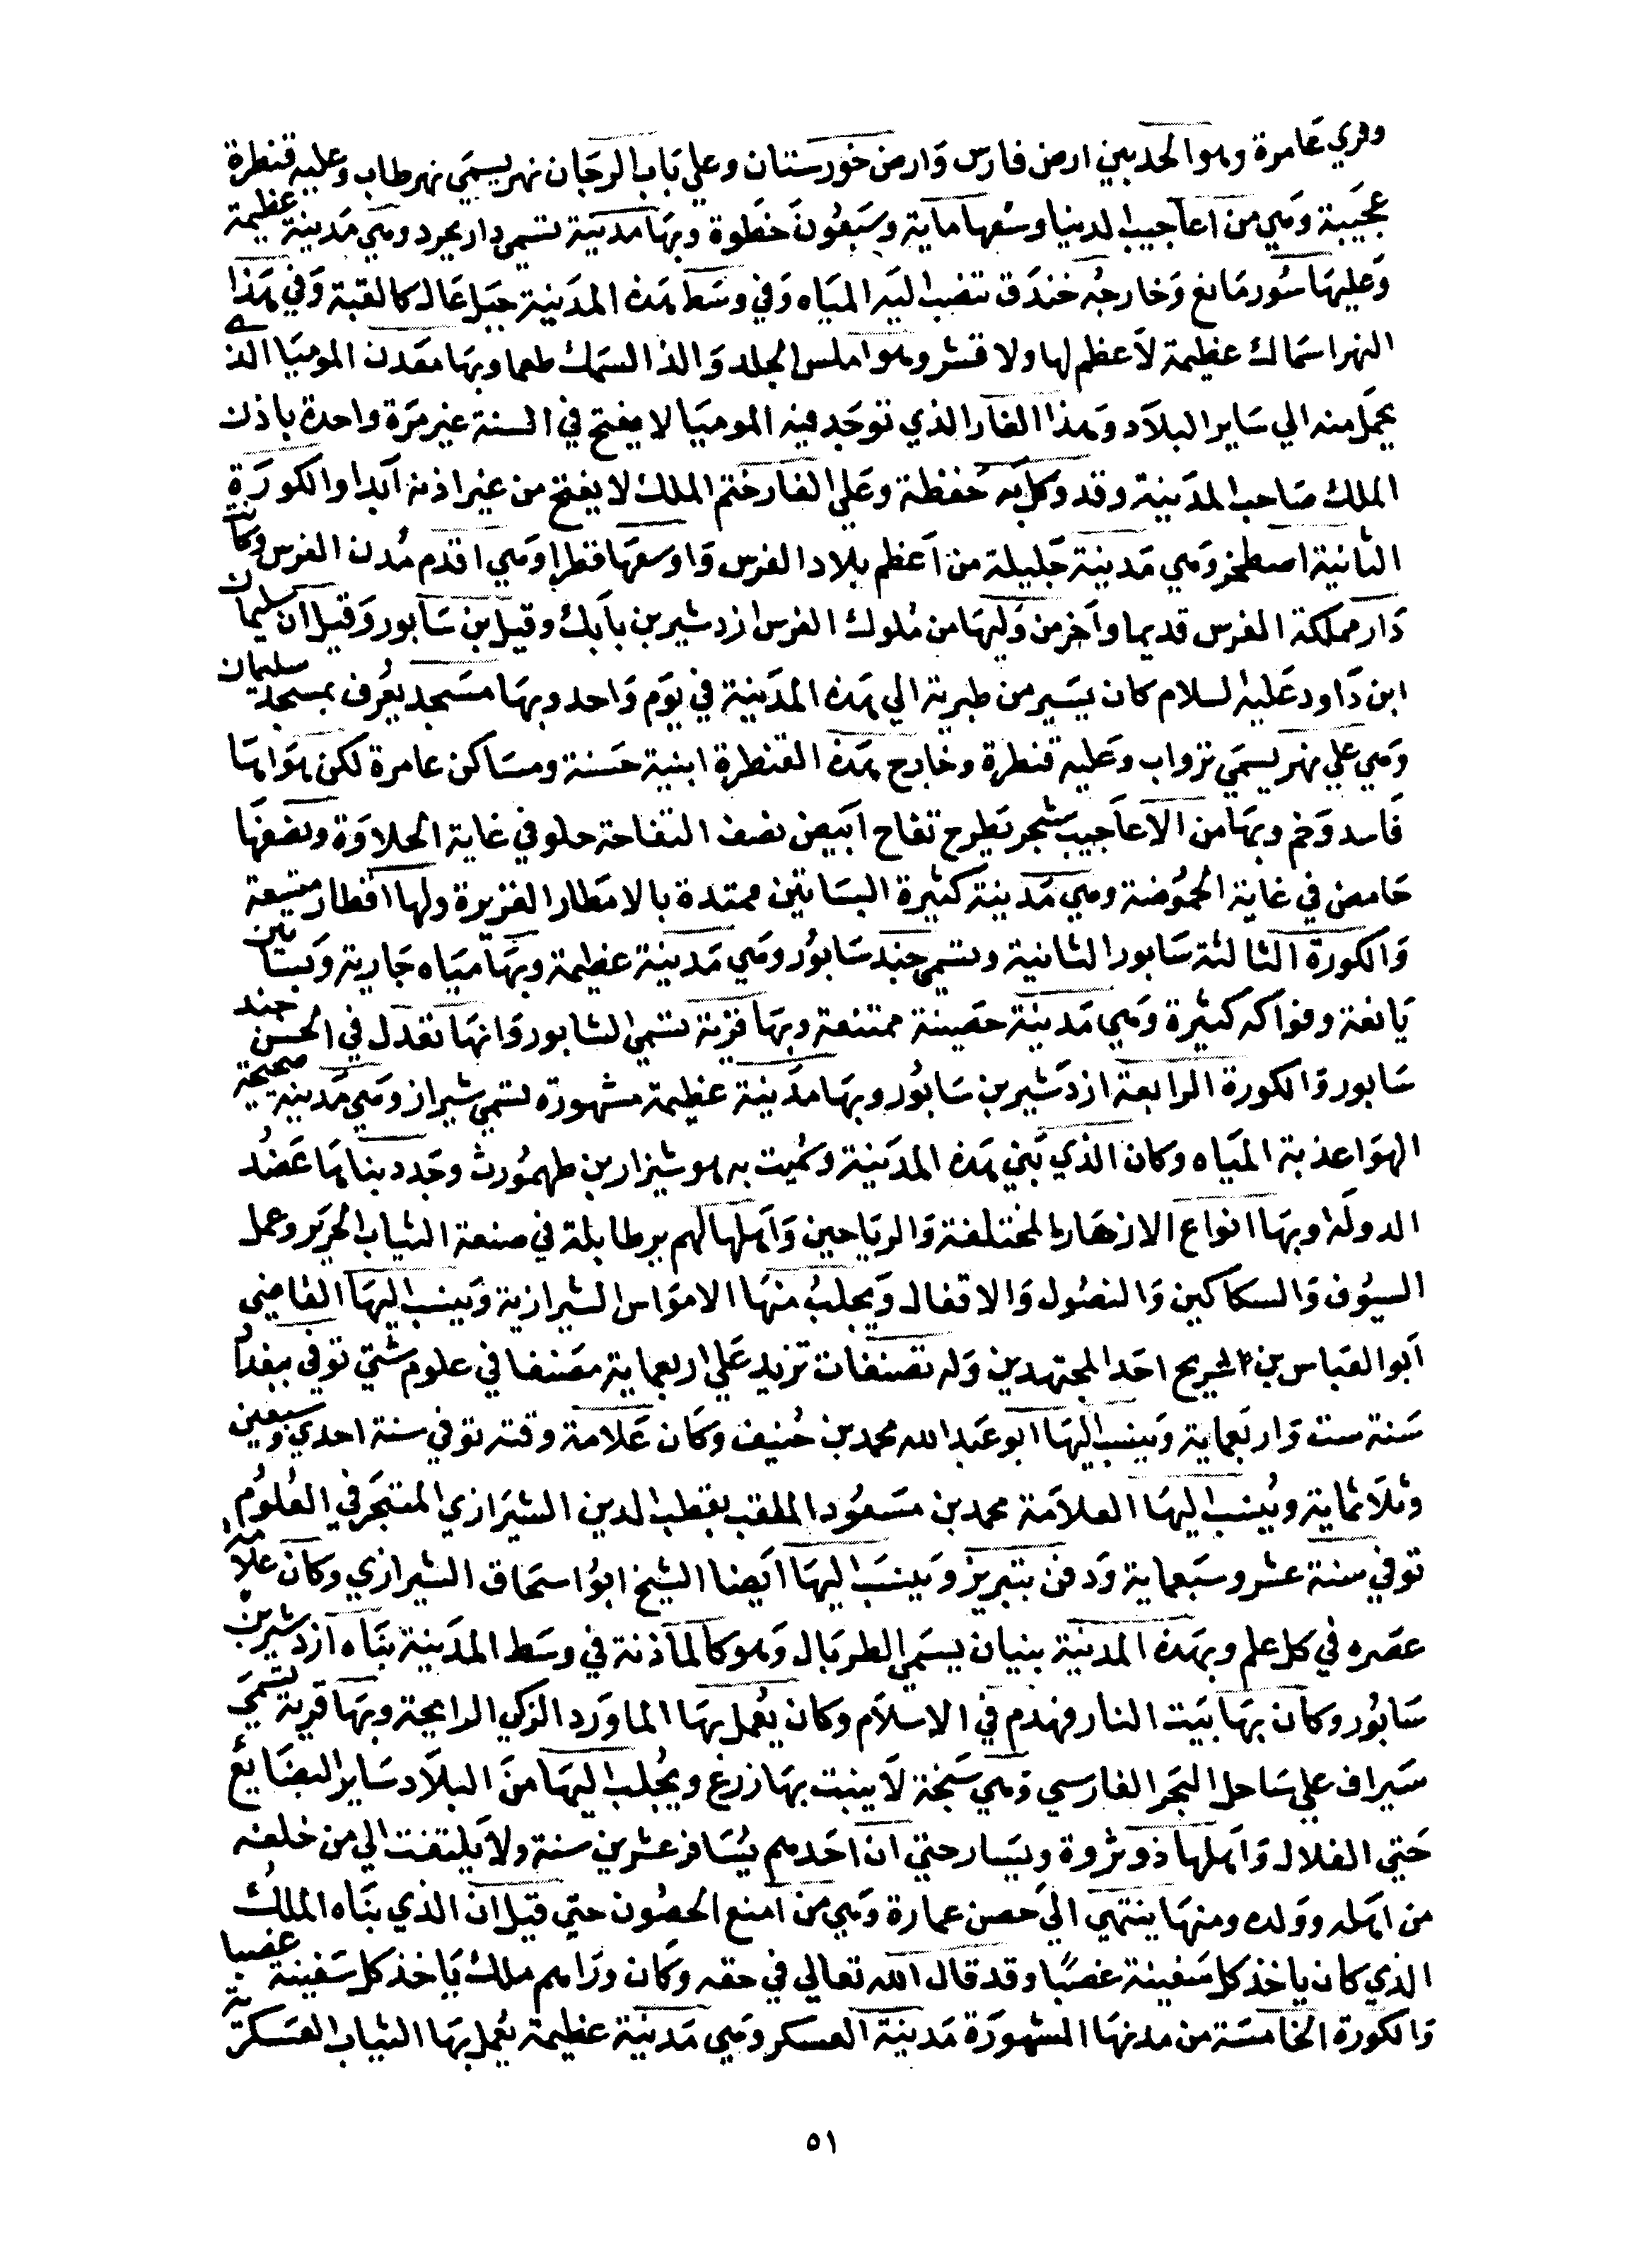 وقري عامرة وهو الحد بين ارض فارس وارض خورستان وعلي باب الرجان نهر يسمي نهر طاب وعليه قنطرة
عجيبة وهي من اعاجيب الدنيا وسعها ماية وسبعون خطوة وبها مدينة تسمي دار بجرد وهي مدينة عظيمة
وعليها سور مانع وخارجه خندق تنصب اليه المياه وفي وسط هذه المدينة جبل عال كالقبة وفي هذا
النهر اسماك عظيمة لا عظم لها ولا قشر وهو املس الجلد والذ السمك طعما وبها معدن الموميا الذي
يحمل منه الي ساير البلاد وهذا الغار الذي توجد فيه الموميا لا يفتح في السنة غير مرة واحدة باذن
الملك صاحب المدينة وقد وكل به حفظة وعلي الغار ختم الملك لا يفتح من غير اذنه ابدا والكورة
الثانية اصطخر وهي مدينة جليلة من اعظم بلاد الفرس واوسعها قطرا وهي اقدم مدن الفرس وكانت
دار مملكة الفرس قديما واخر من وليها من ملوك الفرس ازدشير بن بابك وقيل بن سابور وقيل ان سليمان
ابن داود عليه السلام كان يسير من طبرية الي هذه المدينة في يوم واحد وبها مسجد يعرف بمسجد سليمان
وهي علي نهر يسمي نزواب وعليه قنطرة وخارج هذه القنطرة ابنية حسنة ومساكن عامرة لكن هوايها
فاسد وخم وبها من الاعاجيب شجر يطرح تفاح ابيض نصف التفاحة حلو في غاية الحلاوة ونصفها
حامض في غاية الحموضة وهي مدينة كثيرة البساتين ممتدة بالامطار الغزيرة ولها اقطار متسعة
والكورة الثالثة سابور الثانية وتسمي جند سابور وهي مدينة عظيمة وبها مياه جارية وبساتين
يانعة وفواكه كثيرة وهي مدينة حصينة ممتنعة وبها قرية تسمي الشابور وانها تعدل في الحسن جند
سابور والكورة الرابعة ازدشير بن سابور وبها مدينة عظيمة مشهورة تسمي شيراز وهي مدينة صحيحة
الهوا عذبة المياه وكان الذي بني هذه المدينة وسميت به هو شيزار بن طهمورث وجدد بنايها عضد
الدولة وبها انواع الازهار المختلفة والرياحين واهلها لهم يد طايلة في صنعة الثياب الحرير وعمل
السيوف والسكاكين والنصول والاقفال ويجلب منها الامواس الشيرازية وينسب اليها القاضي
ابو العباس بن شريح احد المجتهدين وله تصنفات تزيد علي اربعماية مصنفا في علوم شتي توفي ببغداد
سنة ست واربعماية وينسب اليها ابو عبد الله محمد بن حنيف وكان علامة وقته توفي سنة احدي وسبعين
وثلاثماية وينسب اليها العلامة محمد بن مسعود الملقب بقطب الدين الشيرازي المتبحر في العلوم
توفي سنة عشر وسبعماية ودفن بتبريز وينسب اليها ايضا الشيخ ابو اسحاق الشيرازي وكان علامة
عصره في كل علم وبهذه المدينة بنيان يسمي الطربال وهو كالماذنة في وسط المدينة بناه ازدشير بن
سابور وكان بها بيت النار فهدم في الاسلام وكان يعمل بها الماورد الزكي الرايحة وبها قرية تسمي
سيراف علي ساحل البحر الفارسي وهي سبخة لا ينبت بها زرع ويجلب اليها من البلاد ساير البضايع
حتي الغلال واهلها ذو ثروة ويسار حتي ان احدهم يسافر عشرين سنة ولا يلتفت الي من خلفه
من اهله وولده ومنها ينتهي الي حصن عمارة وهي من امنع الحصون حتي قيل ان الذي بناه الملك
الذي كان ياخذ كل سفينة غصبا وقد قال الله تعالي في حقه وكان وراهم ملك ياخذ كل سفينة غصبا
والكورة الخامسة من مدنها المشهورة مدينة العسكر وهي مدينة عظيمة يعمل بها الثياب العسكرية
٥١